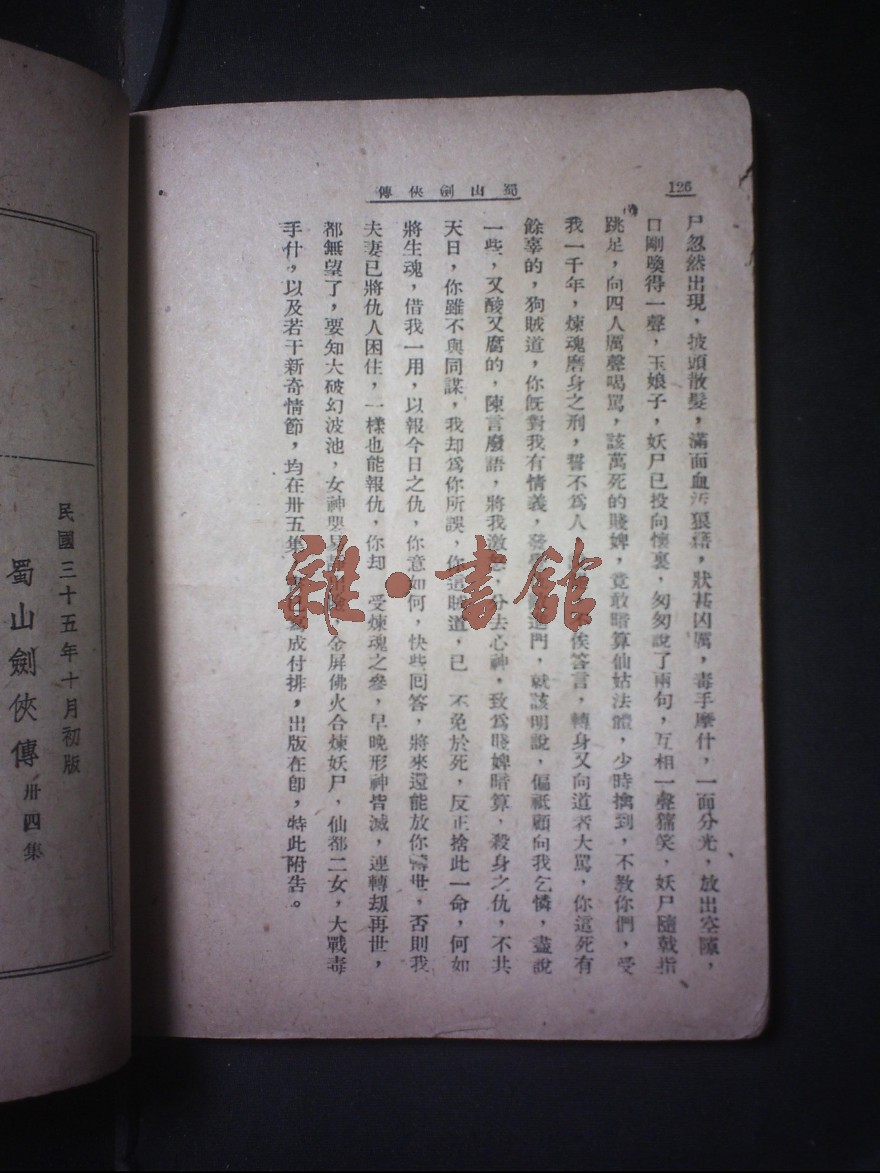 126
蜀山劍俠傳
尸忽然出現，披頭散髮，滿面血汚狼藉，狀甚凶厲，毒手摩什，一面分光，放出空隙，
口剛喚得一聲，玉娘子，妖尸已投向懷裏，匆匆說了兩句，互相一聲獰笑，妖尸隨戟指
跳足，向四人厲聲喝罵，該萬死的賤婢，竟敢暗算仙姑法體，少時擒到，不教你們，受
我一千年，煉魂磨身之刑，誓不爲人，俟答言，轉身又向道者大罵，你這死有
餘辜的，狗賊道，你旣對我有情義，發門，就該明說，偏祇顧向我乞憐，盡說
一些，又酸又腐的，陳言廢語，將我激，分去心神，致爲賤婢暗算，殺身之仇，不共
天日，你雖不與同謀，我却爲你所誤，你這賊道，已 不免於死，反正捨此一命，何如
將生魂，借我一用，以報今日之仇，你意如何，快些回答，將來還能放你轉世，否則我
夫妻已將仇人困住，一樣也能報仇，你却 受煉魂之慘，早晚形神皆滅，連轉刼再世，
都無望了，要知大破幻波池，女神嬰易，金屏佛火合煉妖尸，仙都二女，大戰毒
手什，以及若干新奇情節，均在卅五集，成付排，出版在卽，特此附告。
民國三十五年十月初版
蜀山劍俠傳 卅四集
雜·書館